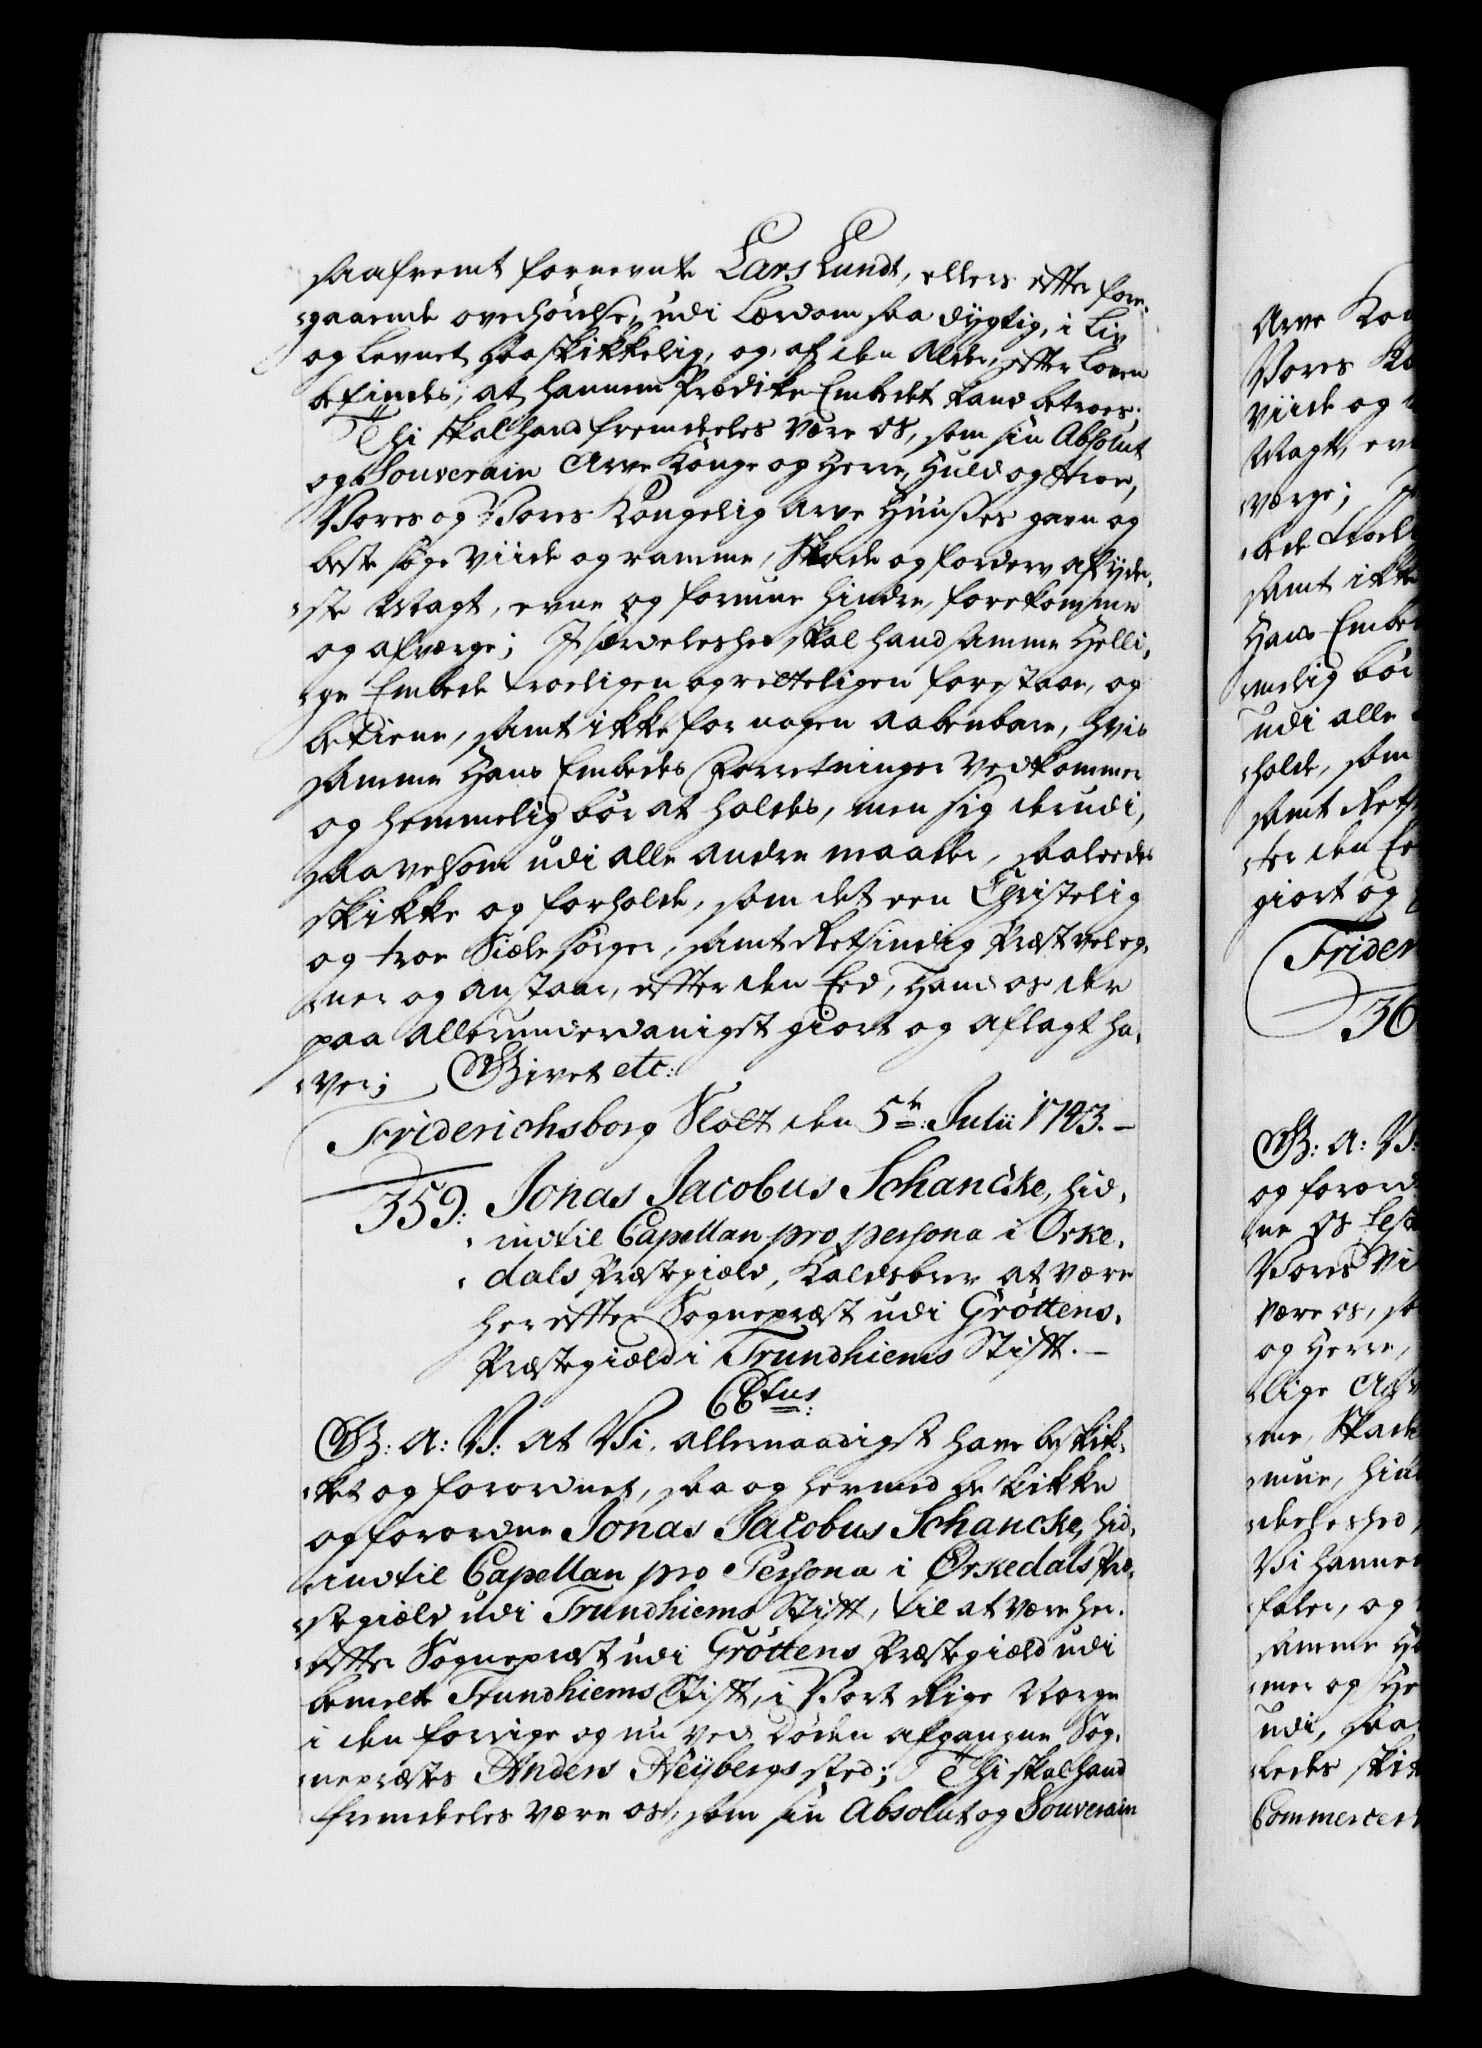 saafremt fornevnte Lars Lundt, ellers effter fore-
gaaende overhörelse, udi Lærdom saa dygtig, i Liv
og Levnet saa skikkelig, og af den Alder, effter Loven
befindes, at hannem Prædike Embedet kand betroes.
Thi skal hand fremdeles være os, som sin Absolut
og Souverain Arve Konge og Herre, Huld og troe,
Vores og Vores Kongelig Arve Huuses gavn og
beste søge Viide og ramme, Skade og forderv af yder-
ste Magt, evne og formue hindre, forekomme
og afværge; Jsærdeleshed skal hand samme Helli-
ge Embede troeligen og retteligen forestaae, og
betiene, samt ikke for nogen aabenbare, hvis
samme Hans Embedes Forretninger Vedkommer
og hemmelig bör at holdes, men sig derudi,
saavelsom udi alle andre maader, saaleedes
skikke og forholde, som det een Christelig
og troe Siæle sörger, samt Retsindig Præst vel eg-
ner og anstaar, effter den Eed, Hand os der
paa allerunderdanigst giort og aflagt ha-
ver; Givet etc:
Friderichsborg Slott den 5te: Julii 1743. –
359: Jonas Jacobus Schancke, hid-
indtil Capellan pro persona i Orke-
dals Præstegiæld, Kaldsbrev at være
hereffter Sognepræst udi Gröttens
Præstegiæld i Trundhiems Stifft. –
CCtus:
G: A: V: at Vi allernaadigst have beskik-
ket og forordnet, saa og hermed beskikke
og forordne Jonas Jacobus Schancke, hid-
indtil Capellan pro Persona i Orkedals Præ-
stegiæld udi Trundhiems Stifft, til at være her-
effter Sognepræst udi Gröttens Præstegiæld udi
bemelte Trundhiems Stifft, i Vort Rige Norge
i den forrige og nu ved Döden afgangne Sog-
nepræstes Anders Heybergs sted; Thi skal hand
fremdeles være os, som sin Absolut og Souverain
Arve Kon
Vores Ko
Viide og
Magt, ev
værge;
samt ikke
Hans Embe
melig bör
udi alle
holde, som
samt Rets
ter den Ee
giort og
Frider
36
G: A: V:
og forord
Vores Vi
være os, so
og Herre,
lige
me, Skade
mue, hin
deleshed
Vi hannem
samme
mer og He
udi, saa
ledes skik
Commerce